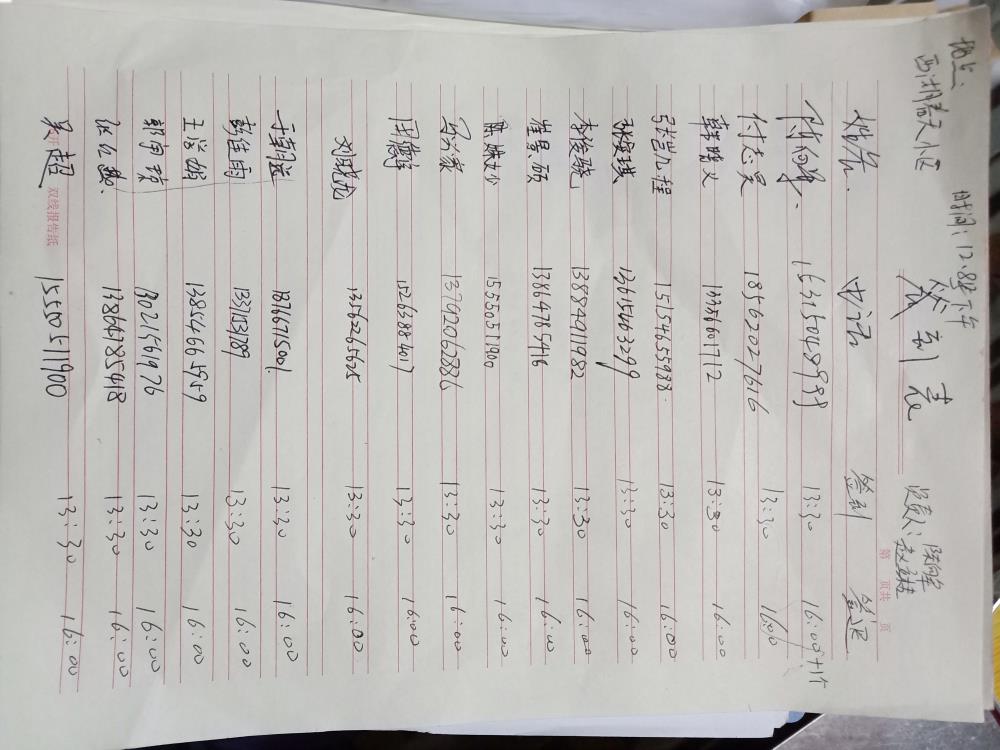 地点:
西湖春天小区
时间:12.8号下午
签到表
负责人:陈向华
第 页共 页
姓名 电话 签到 签退
陈向华 15315048988 13:30 16:00+1个
付志昊 18562027616 13:30 16:00
韩晓义 13356601712 13:30 16:00
张凯程 15154655988 13:30 16:00
张家琪 13615463299 13:30 16:00
李俊毅 13884911982 13:30 16:00
崔景硕 13864785416 13:30 16:00
15550511900 13:30 16:00
13792062886 13:30 16:00
15263881407 13:30 16:00
刘成龙 13562265625 13:30 16:00
18766715001 13:30 16:00
彭佳雨 13371537289 13:30 16:00
王洛娴 13854665959 13:30 16:00
郭雨 13021546976 13:30 16:00
13864785418 13:30 16:00
吴超 15550511900 13:30 16:00
双线报告纸